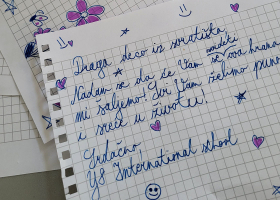 Draga deco iz svratišta
Nadam se da će Vam svideti se ova hrana
mi šaljemo! Svi Vam želimo puno
i sreće u životu!
Srdačno,
Y8 International school